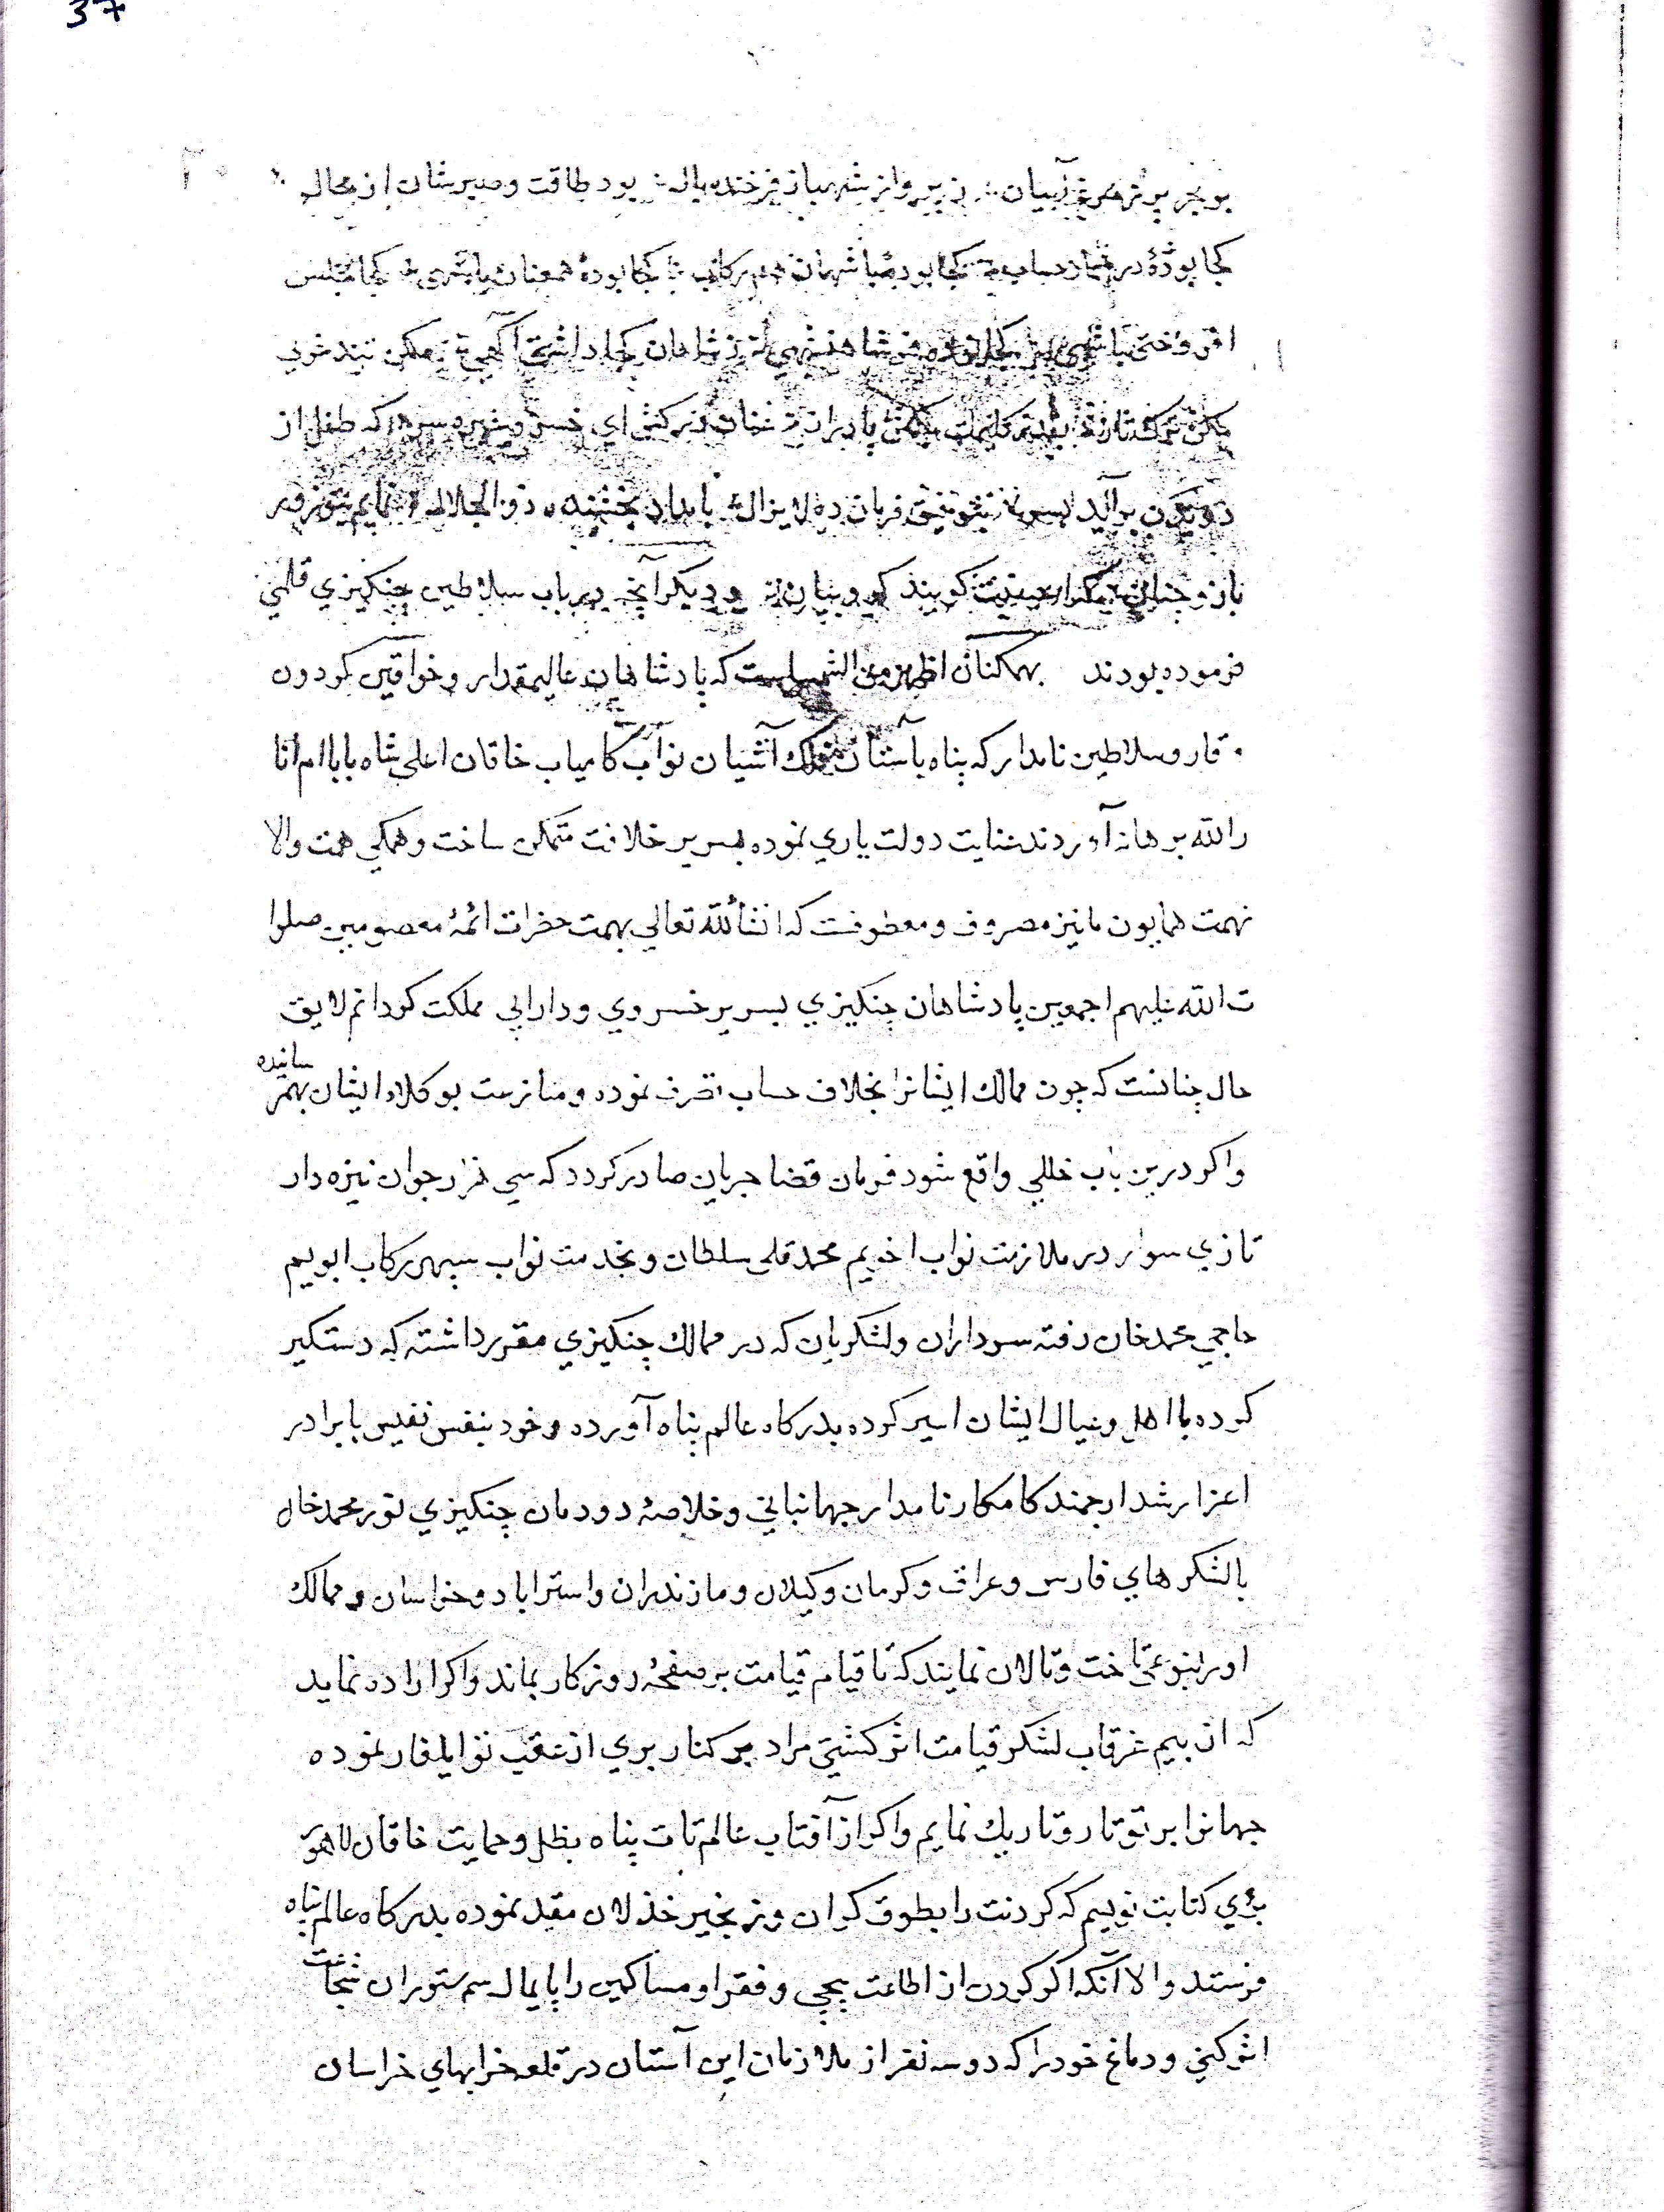 37
بود طاقت و صبرشان از محال
کجا بودهٔ در شمار حساب کجا بودهٔ با شهان هم رکاب کجا بودهٔ همعنان با شهی کجا مجلس
افروختی با شهی شاهنشهی ز شاهان کجا داشتی آگهی مکن تندخوی
مکن که طفل از
دویدن برآید بسر بتوفیق فرمان ده لایزال بامداد بخشنده ذو الجلال نمایم بتو زور
بازو چنان و دیکر آنچه در باب سلاطین چنکیزی قلمی
فرموده بودند بهمکنان اظهر من الشمس است که پادشاهان عالیمقدار و خواقین کردون
وقار و سلاطین نامدار که پناه بآستان فلک آشیان نواب کامیاب خاقان اعلی شاه بابا ام انا
ر الله برهانه آوردند عنایت دولت یاری نموده بسریر خلافت متمکن ساخت و همکی همت والا
نهمت همایون ما نیز مصروف و معطوفست که انشأ لله تعالی بهمت حضرات ائمهٔ معصومین صلوا
ت الله علیهم اجمعین پادشاهان چنکیزی بسریر خسروی و دارایی مملکت کردانم لایق
حال چنانست که چون ممالک ایشانرا بخلاف حساب تصرف نموده و منازعت بوکلاء ایشان بهم رسانیده
و اکر درین باب خللی واقع شود فرمان قضا جریان صادر کردد که سی هزار جوان نیزه دار
تازی سوار در ملازمت نواب اخویم محمد قلی سلطان و بخدمت نواب سپهر رکاب ابویم
حاجی محمد خان رفته سرداران و لشکریان که در ممالک چنکیزی مقرر داشته که دستکیر
کرده با اهل و عیال ایشان اسیر کرده بدرکاه عالم پناه آورده و خود بنفس نفیس با برادر
اعز ارشد ارجمند کامکار نامدار جهانبانی و خلاصهٔ دودمان چنکیزی نور محمد خان
با لشکرهای فارس و عراق و کرمان و کیلان و مازندران و استراباد و خراسان و ممالک
او را بنوعی تاخت و تالان نمایند که تا قیام قیامت بر صفحهٔ روزکار بماند و اکر اراده نماید
که از بیم غرقاب لشکر قیامت اثر کشتی مراد بر کنار بری از عقب تو ایلغار نموده
جهانرا بر تو تار و تاریک نمایم و اکر از آفتاب عالم تاب پناه بظل و حمایت خاقان لاهور
بری کتابت نویسم که کردنت را بطوق کران و زنجیر خذلان مقید نموده بدرکاه عالم پناه
فرستد و الا آنکه اکر کردن از اطاعت پیچی و فقرا و مساکین را پایمال سم ستوران شجاعت
اثر کنی و دماغ خود را که دو سه نفر از ملازمان این آستان در قلعه خرابهای خراسان